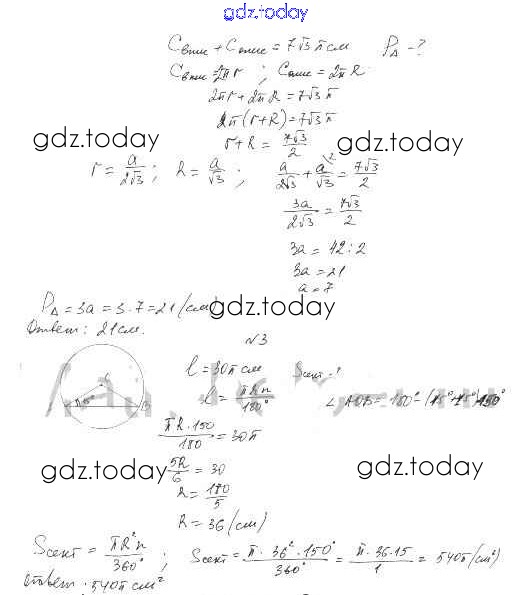 gdz.today
Cвпис + Cопис = 7√3 π см P△ - ?
Cвпис = 2πr ; Cопис = 2πR
2πr + 2πR = 7√3 π
2π(r+R) = 7√3 π
gdz.today r+R = 7√3/2 gdz.today
r = a/2√3 ; R = a/√3 ; a/2√3 + a/√3 = 7√3/2
3a/2√3 = 7√3/2
3a = 42 : 2
3a = 21
a = 7
P△ = 3a = 3·7 = 21 (см) gdz.today
Ответ: 21 см.
№3
l = 30π см Sсект - ?
l = πRn/180° ∠AOB = 180° - (15°+15°) 150°
πR·150/180 = 30π
5R/6 = 30
gdz.today gdz.today
R = 180/5
R = 36 (см)
Sсект = πR²n/360° ; Sсект = π·36²·150°/360° = π·36·15/1 = 540π (см²)
Ответ. 540π см²